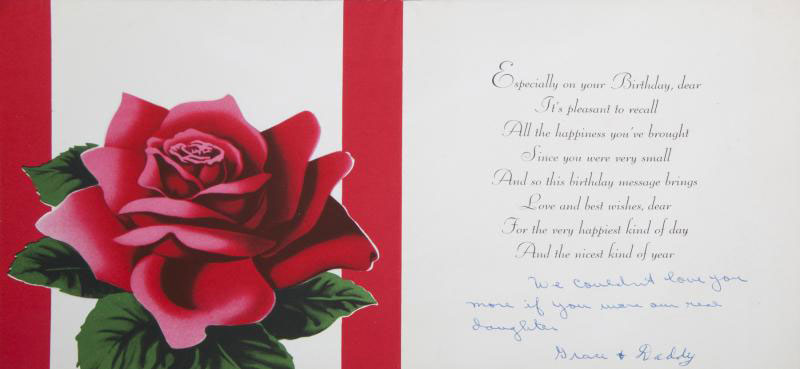 Especially on your Birthday, dear
It's pleasant to recall
All the happiness you've brought
Since you were very small
And so this birthday message brings
Love and best wishes, dear
For the very happiest kind of day
And the nicest kind of year
We couldn't love you
more if you were our real
daughter
Grace & Daddy